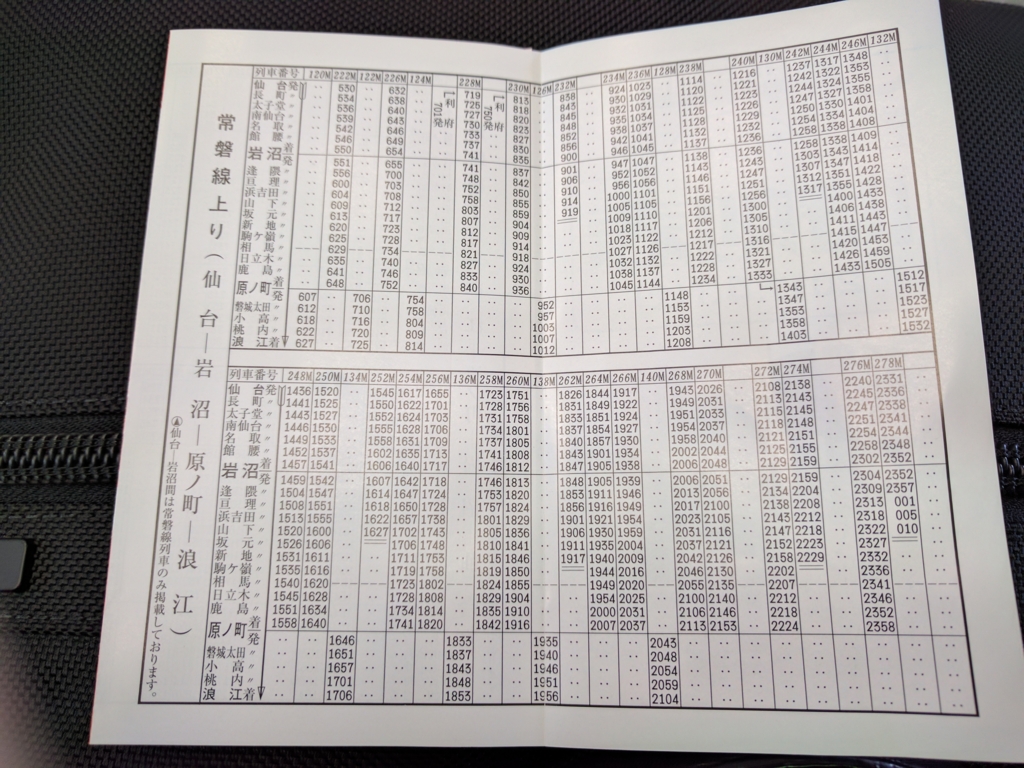 常磐線上り(仙台―岩沼―原ノ町―浪江)
▲仙台―岩沼間は常磐線列車のみ掲載しております。
列車番号 120M 222M 122M 226M 124M 228M 230M 126M 232M 234M 236M 128M 238M 240M 130M 242M 244M 246M 132M
仙台発 530 632 719 813 838 924 1023 1114 1216 1237 1317 1348
長町〃 534 638 725 818 843 930 1029 1120 1221 1242 1322 1353
太子堂〃 536 640 727 820 845 932 1031 1122 1223 1244 1324 1355
南仙台〃 539 643 730 823 848 935 1034 1125 1226 1247 1327 1358
名取〃 542 646 733 827 852 938 1037 1128 1229 1250 1330 1401
館腰〃 546 649 737 830 856 942 1041 1132 1232 1254 1334 1404
岩沼着 550 654 741 835 900 946 1045 1137 1236 1258 1338 1408
利府701発
利府750発
岩沼発 551 655 741 837 901 947 1047 1138 1238 1258 1338 1409
逢隈〃 556 700 748 842 906 952 1052 1143 1243 1303 1343 1414
亘理〃 600 703 752 850 910 956 1056 1146 1247 1307 1347 1418
浜吉田〃 604 708 758 855 914 1000 1101 1151 1251 1312 1351 1422
山下〃 609 712 803 859 919 1005 1105 1156 1256 1317 1355 1428
坂元〃 613 717 807 904 1009 1110 1201 1300 1400 1433
新地〃 620 723 812 909 1018 1117 1206 1305 1406 1438
駒ケ嶺〃 625 728 817 914 1023 1122 1212 1310 1411 1443
相馬〃 629 734 821 918 1027 1126 1217 1316 1415 1447
日立木〃 635 740 827 924 1032 1132 1222 1321 1420 1453
鹿島〃 641 746 833 930 1038 1137 1228 1327 1426 1459
原ノ町着 648 752 840 936 1045 1144 1234 1333 1433 1505
原ノ町発 607 706 754 952 1148 1343 1512
磐城太田〃 612 710 758 957 1153 1347 1517
小高〃 618 716 804 1003 1159 1353 1523
桃内〃 622 720 809 1007 1203 1358 1527
浪江着 627 725 814 1012 1208 1403 1532
列車番号 248M 250M 134M 252M 254M 256M 136M 258M 260M 138M 262M 264M 266M 140M 268M 270M 272M 274M 276M 278M
仙台発 1436 1520 1545 1617 1655 1723 1751 1826 1844 1917 1943 2026 2108 2138 2240 2331
長町〃 1441 1525 1550 1622 1701 1728 1756 1831 1849 1922 1949 2031 2113 2143 2245 2336
太子堂〃 1443 1527 1552 1624 1703 1731 1758 1833 1851 1924 1951 2033 2115 2145 2247 2338
南仙台〃 1446 1530 1555 1628 1706 1734 1801 1837 1854 1927 1954 2037 2118 2148 2251 2341
名取〃 1449 1533 1558 1631 1709 1737 1805 1840 1857 1930 1958 2040 2121 2151 2254 2344
館腰〃 1452 1537 1602 1635 1713 1741 1808 1843 1901 1934 2002 2044 2125 2155 2258 2348
岩沼着 1457 1541 1606 1640 1717 1746 1812 1847 1905 1938 2006 2048 2129 2159 2302 2352
岩沼発 1459 1542 1607 1642 1718 1746 1813 1848 1905 1939 2006 2051 2129 2159 2304 2352
逢隈〃 1504 1547 1614 1647 1724 1753 1820 1853 1911 1946 2013 2056 2134 2204 2309 2357
亘理〃 1508 1551 1618 1650 1728 1757 1824 1856 1916 1949 2017 2100 2138 2208 2313 001
浜吉田〃 1513 1555 1622 1657 1738 1801 1829 1901 1921 1954 2023 2105 2143 2212 2318 005
山下〃 1520 1600 1627 1702 1743 1805 1836 1906 1930 1959 2031 2116 2147 2218 2322 010
坂元〃 1526 1606 1706 1748 1810 1841 1911 1935 2004 2037 2121 2152 2223 2327
新地〃 1531 1611 1711 1753 1815 1846 1917 1940 2009 2042 2126 2158 2229 2332
駒ケ嶺〃 1535 1616 1719 1758 1819 1850 1944 2016 2046 2130 2202 2336
相馬〃 1540 1620 1723 1802 1824 1855 1949 2020 2055 2135 2207 2341
日立木〃 1545 1628 1728 1808 1829 1904 1954 2025 2100 2140 2212 2346
鹿島〃 1551 1634 1734 1814 1835 1910 2000 2031 2106 2146 2218 2352
原ノ町着 1558 1640 1741 1820 1842 1916 2007 2037 2113 2153 2224 2358
原ノ町発 1646 1833 1935 2043
磐城太田〃 1651 1837 1940 2048
小高〃 1657 1843 1946 2054
桃内〃 1701 1848 1951 2059
浪江着 1706 1853 1956 2104